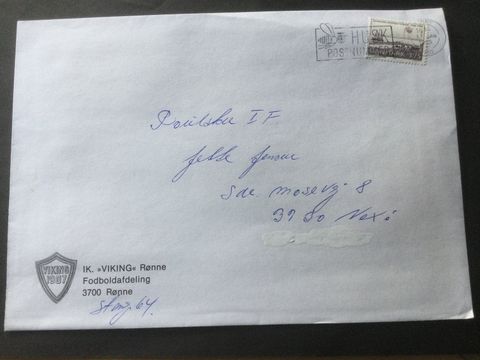 HUSK
POSTNUM
Poulsker I F.
Sdr. Mosevej 8
3730 Nexø
VIKING
1907
IK. »VIKING« Rønne
Fodboldafdeling
3700 Rønne